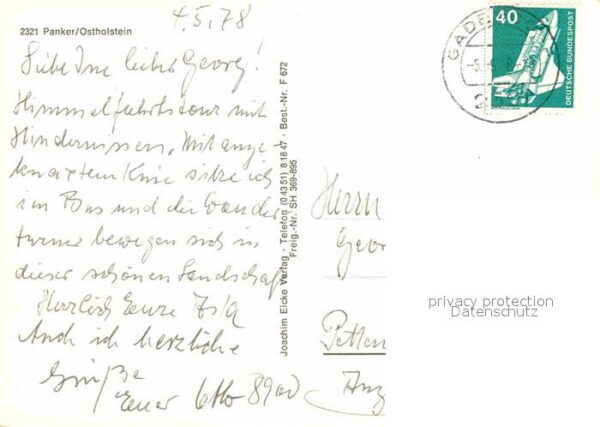 4.5.78
2321 Panker/Ostholstein
Liebe lieber Georg!
Himmelfahrtstour mit
Hindernissen. Mit ange-
knaxtem Knie sitze ich
im Bus und die Wander
turner bewegen sich in
dieser schönen Landschaft
Herzlich Eure
Auch ich herzliche
Grüße
Euer Otto
Joachim Eicke Verlag · Telefon (0 43 51) 8 18 47 · Best.-Nr. F 672
Freig.-Nr. SH 369-895
GADE
40
DEUTSCHE BUNDESPOST
Herrn
Geor
Petten
privacy protection
Datenschutz